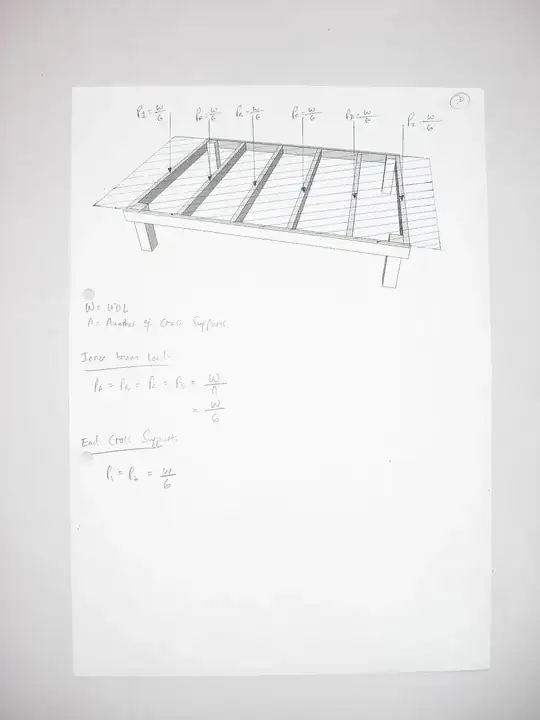 P1 = W/6
PA = W/6
PB = W/6
PC = W/6
PD = W/6
P2 = W/6
W = UDL
A = Number of Cross Supports
Inner beam Loads
PA = PB = PC = PD = W/A
= W/6
End Cross Supports
P1 = P2 = W/6